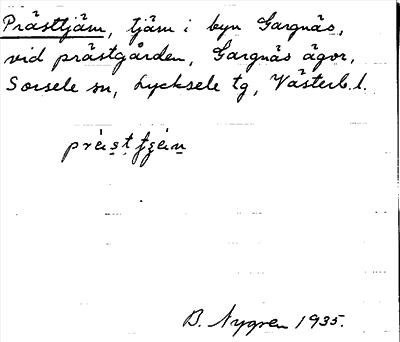 Prästtjärn, tjärn i byn Gargnäs,
vid prästgården, Gargnäs ägor,
Sorsele sn, Lycksele tg, Västerb. l.
B. Nygren 1935.